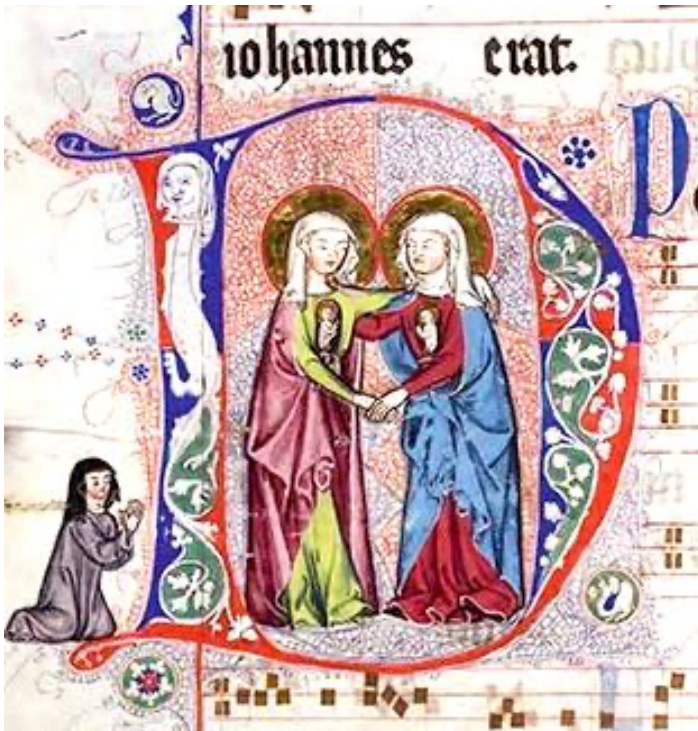 iohannes erat. P
D